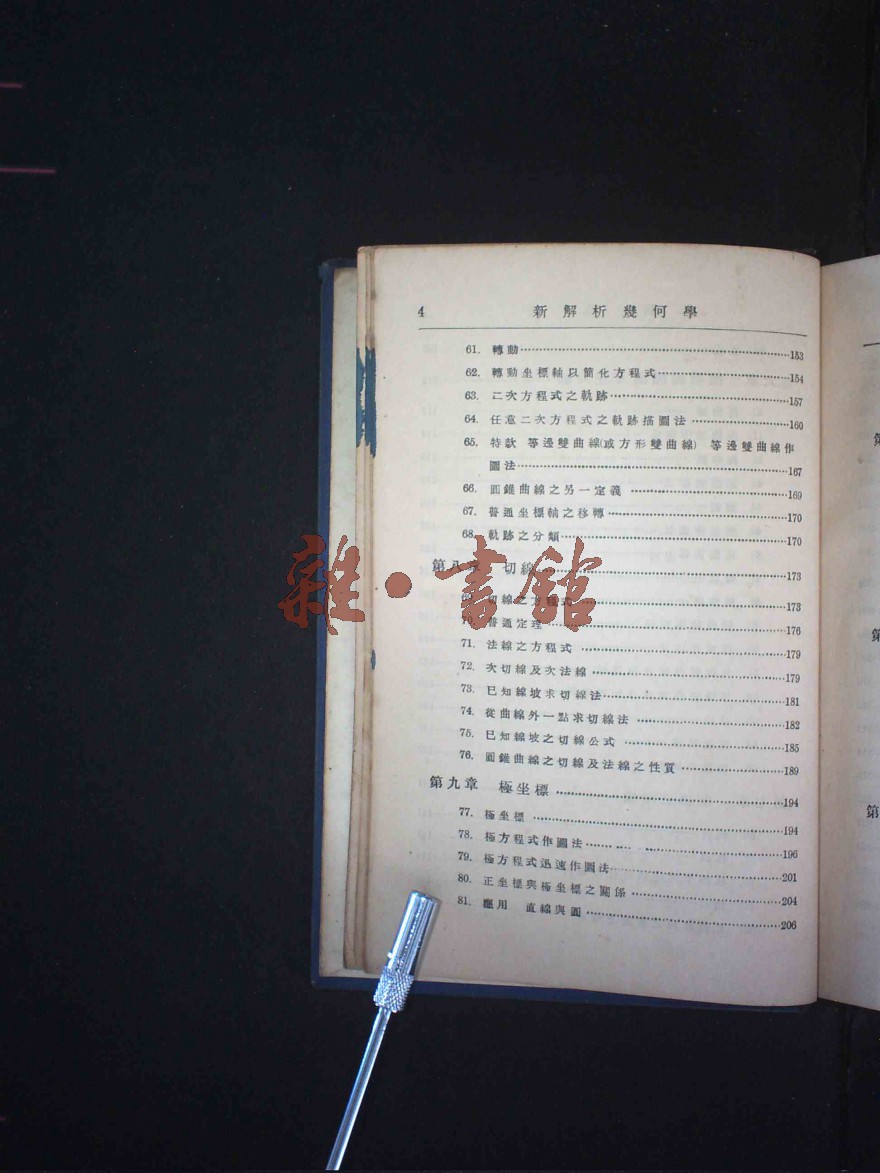 4 新解析幾何學
61. 轉動 153
62. 轉動坐標軸以簡化方程式 154
63. 二次方程式之軌跡 157
64. 任意二次方程式之軌跡描圖法 160
65. 特款 等邊雙曲線(或方形雙曲線) 等邊雙曲線作
圖法 167
66. 圓錐曲線之另一定義 169
67. 普通坐標軸之移轉 170
68. 軌跡之分類 170
第八章 切線 173
69. 切線之方程式 173
70. 普通定理 176
71. 法線之方程式 179
72. 次切線及次法線 179
73. 已知線坡求切線法 181
74. 從曲線外一點求切線法 182
75. 已知線坡之切線公式 185
76. 圓錐曲線之切線及法線之性質 189
第九章 極坐標 194
77. 極坐標 194
78. 極方程式作圖法 196
79. 極方程式迅速作圖法 201
80. 正坐標與極坐標之關係 204
81. 應用 直線與圓 206
雜·書館
第
第
第